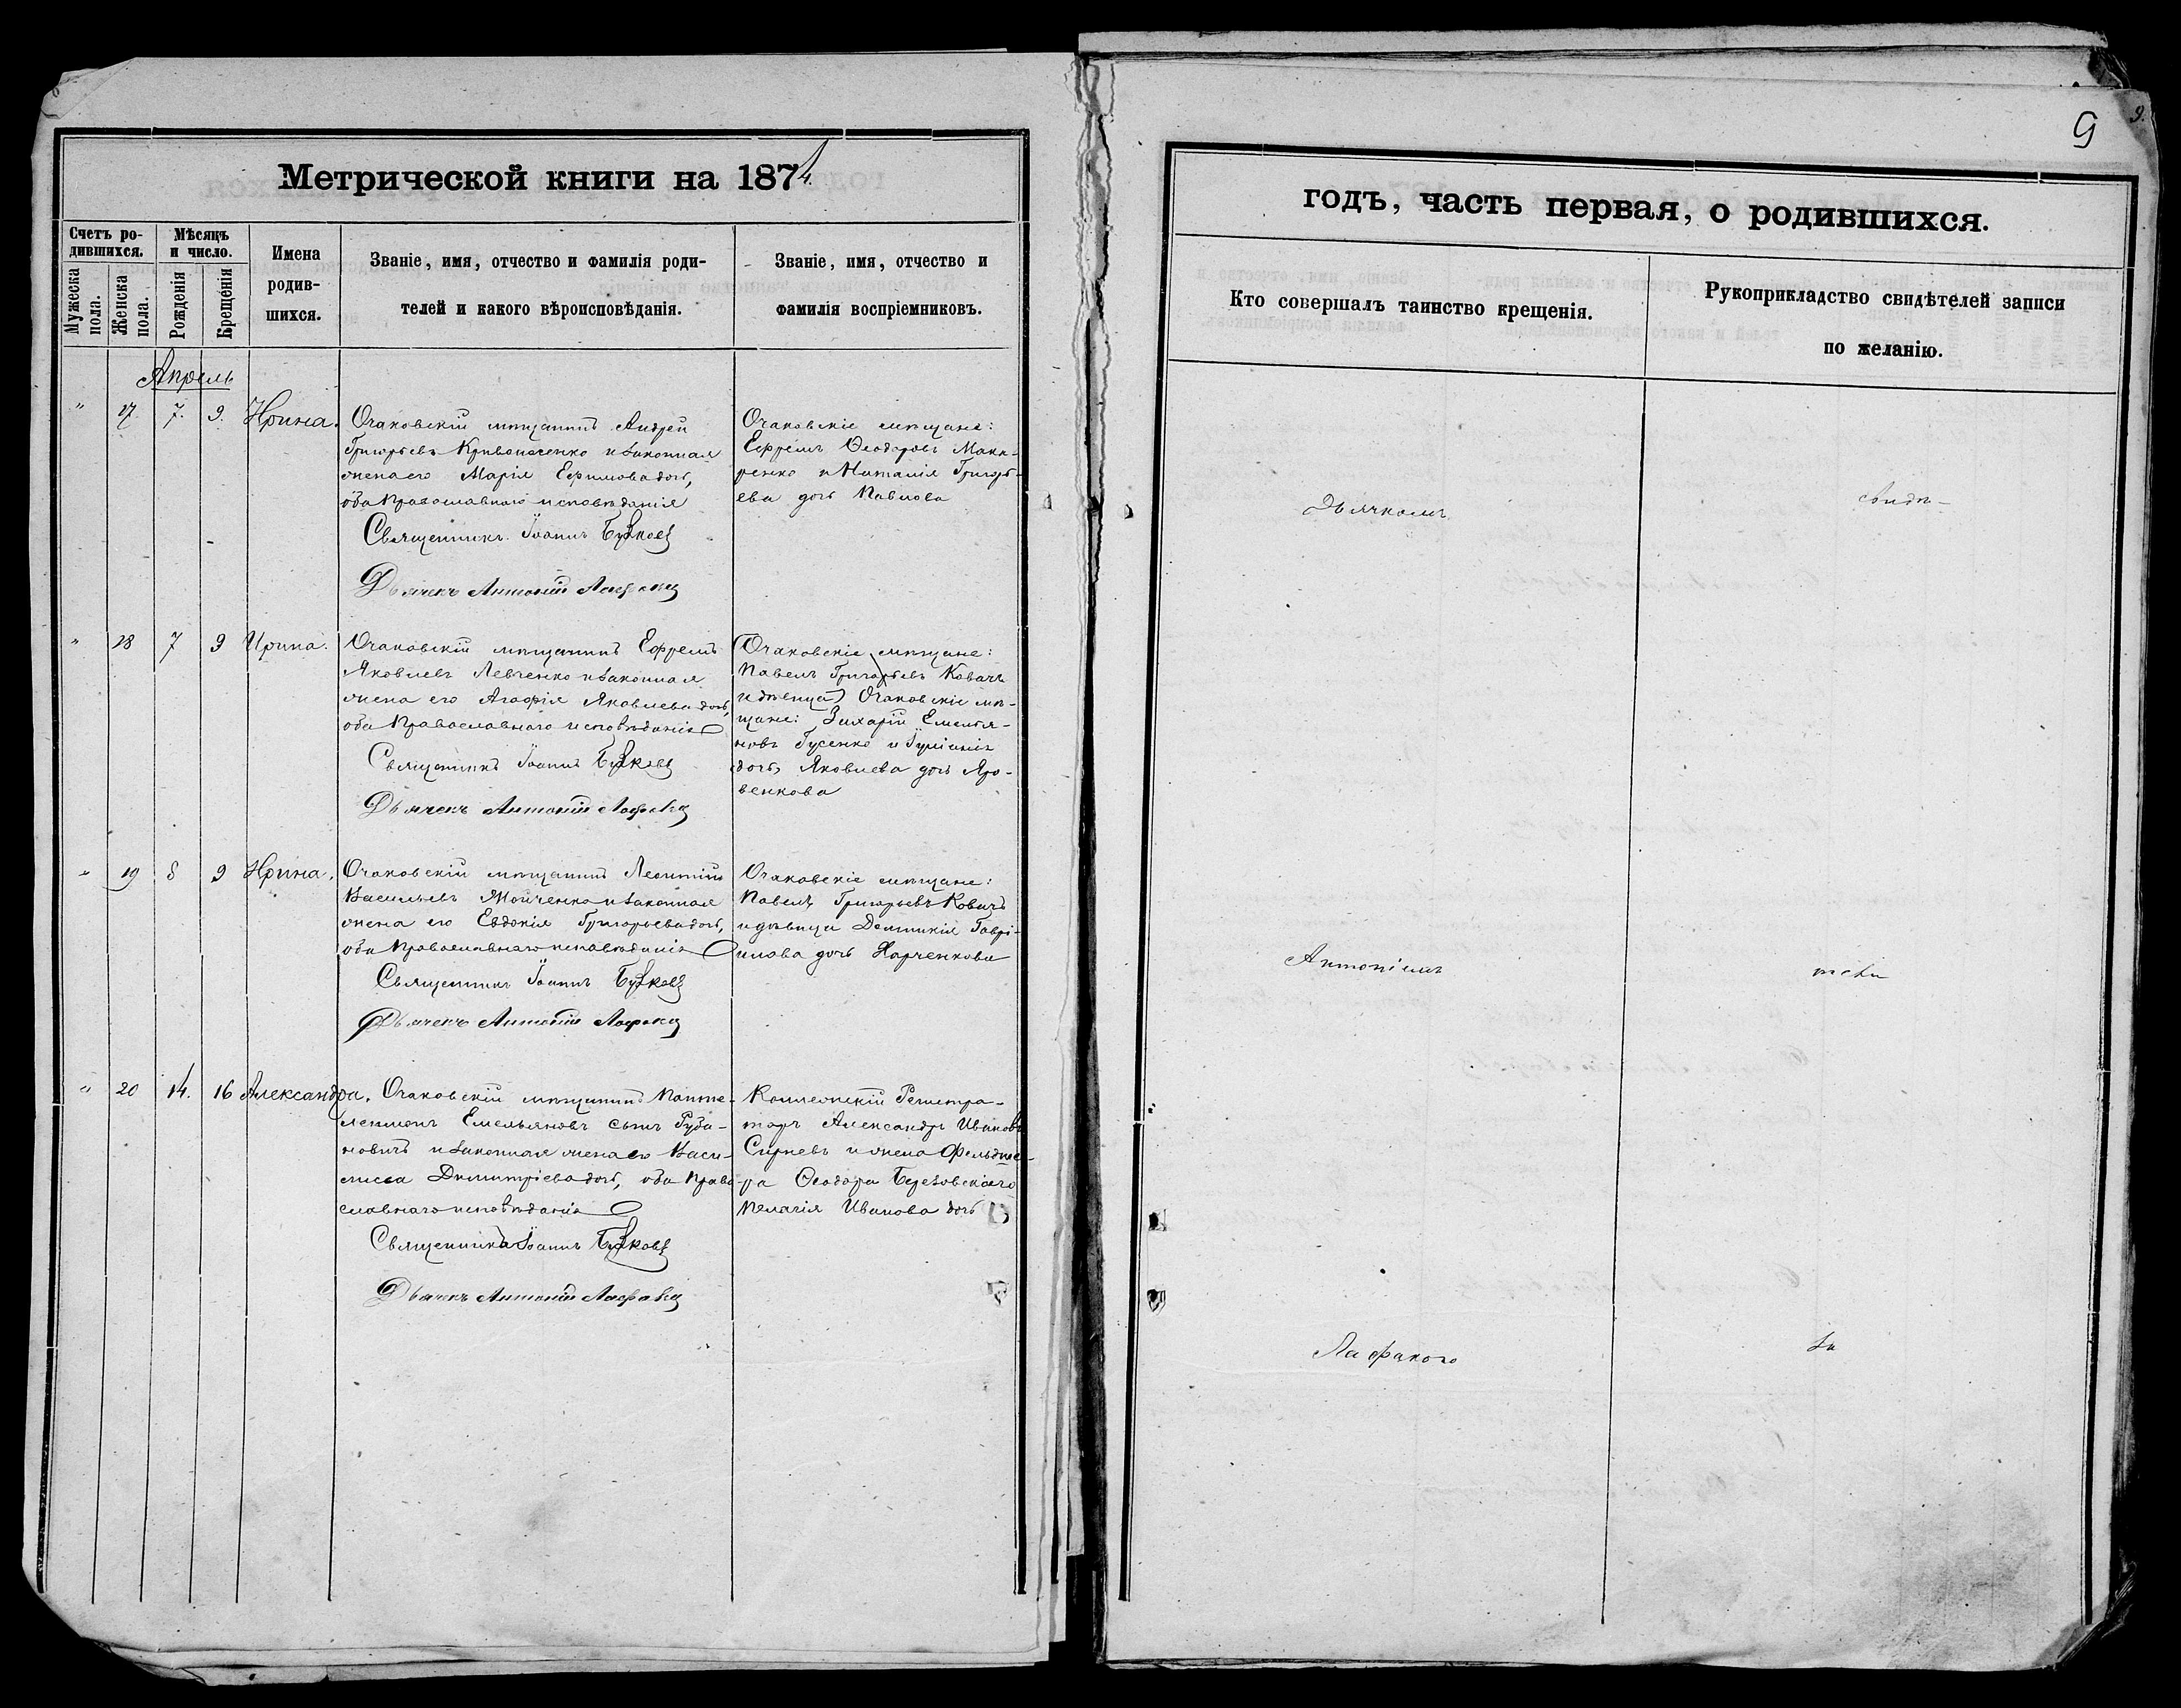 Метрической книги на 1874.
Счетъ ро-
дившихся.
Мужеска
пола.
Женска
пола.
Мѣсяцъ
и число.
Рожденія
Крещенія
Имена
родив-
шихся.
Званіе, имя, отчество и фамилія роди-
телей и какого вѣроисповѣданія.
Званіе, имя, отчество и
фамилія воспріемниковъ.
Апрель
" 17 7. 9. Ирина.
Очаковскій мѣщанинъ Андрей
Григорьевъ и законная
жена его Марія Ефимова дочь,
оба православнаго исповѣданія
Священникъ Іоаннъ
Дьячекъ Антоній
Очаковскіе мѣщане:
Ефремъ Ѳеодоровъ Мака-
ренко и Наталія Григорь-
ева дочь Павлова
" 18 7 9 Ирина.
Очаковскій мѣщанинъ Ефремъ
Яковлевъ Левченко и законная
жена его Агафія Яковлева дочь,
оба православнаго исповѣданія
Священникъ Іоаннъ
Дьячекъ Антоній
(Очаковскіе мѣщане:
Павелъ Григорьевъ Ковачъ
и дѣвица) Очаковскіе мѣ-
щане: Захарій Емелья-
новъ Гусенко и
дочь Яковлева дочь Яро-
венкова
" 19 8 9 Ирина.
Очаковскій мѣщанинъ Леонтій
Васильевъ Мойченко и законная
жена его Евдокія Григорьева дочь,
оба православнаго исповѣданія
Священникъ Іоаннъ
Дьячекъ Антоній
Очаковскіе мѣщане:
Павелъ Григорьевъ Ковачъ
и дѣвица Домникія Гаврі-
илова дочь Харченкова
" 20 14. 16 Александра.
Очаковскій мѣщанинъ Панте-
леимонъ Емельяновъ сынъ Руба-
новичъ и законная жена его Васи-
лисса Димитріева дочь, оба право-
славнаго исповѣданія
Священникъ Іоаннъ
Дьячекъ Антоній
Коллежскій Регистра-
торъ Александръ Ивановъ
и жена Фельдше-
ра Ѳеодора Березовскаго
Пелагія Иванова дочь
9
9.
годъ, часть первая, о родившихся.
Кто совершалъ таинство крещенія.
Рукоприкладство свидѣтелей записи
по желанію.
Дьячкомъ
свидѣ-
Антоніемъ
теля